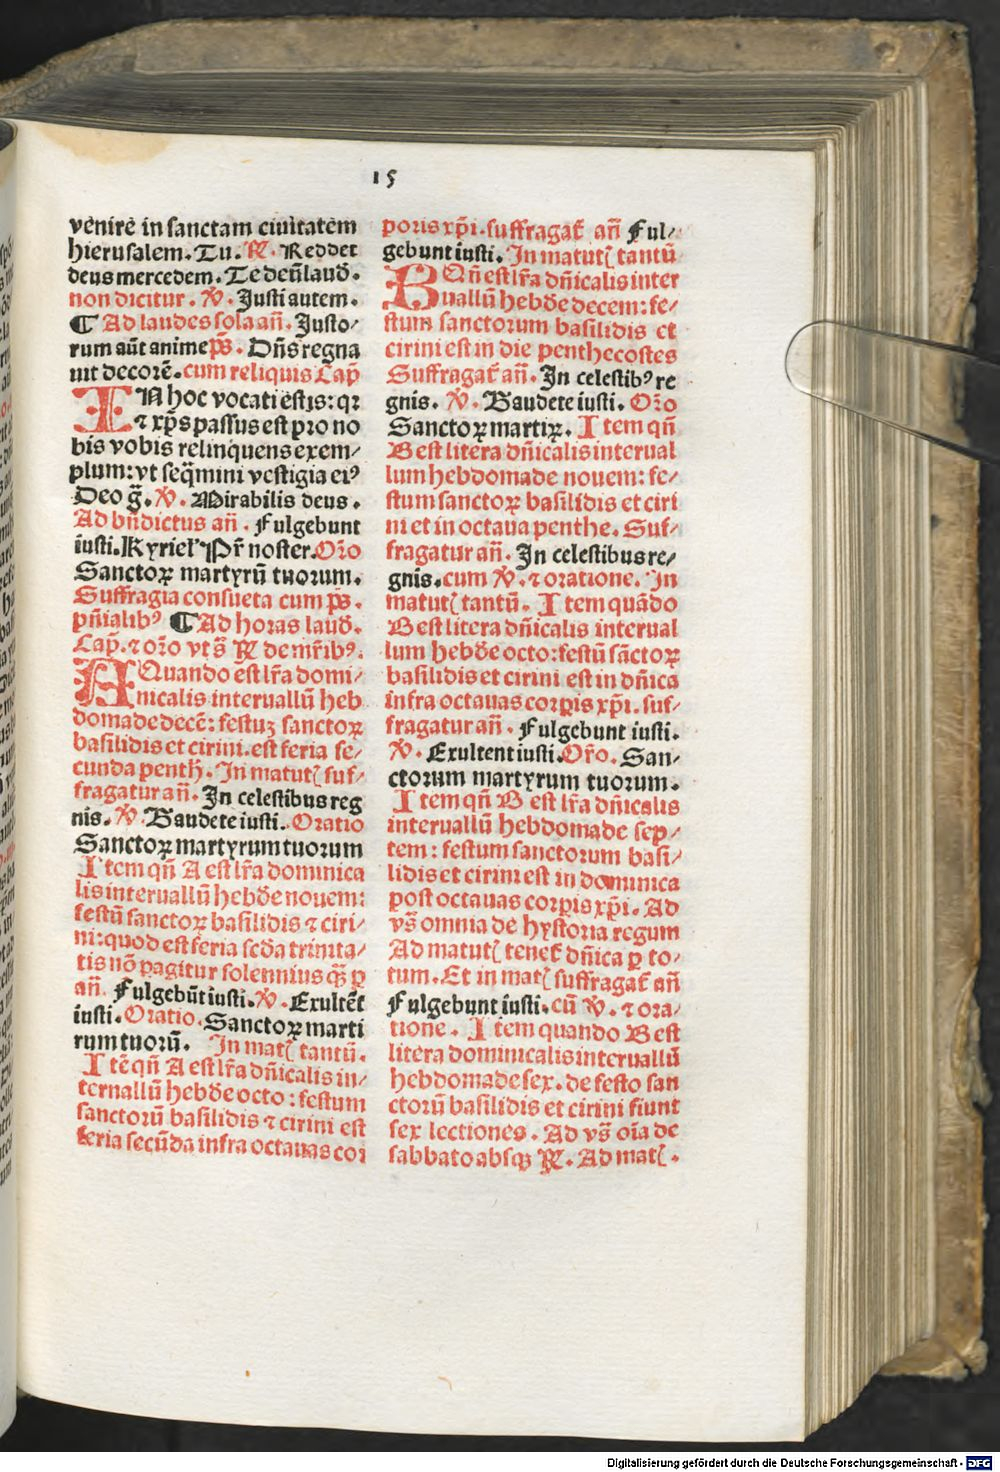 15
venire in sanctam ciuitatem
hierusalem. Tu. ℟. Reddet
deus mercedem. Te deū laud̄.
non dicitur. ℣. Justi autem.
¶ Ad laudes sola an̄. Justo/
rum aūt anime p̄s. Dn̄s regna
uit decorē. cum reliquis Cap̄
IN hoc vocati estis: qꝛ
⁊ xp̄s passus est pro no
bis vobis relinquens exem/
plum: vt seq̄mini vestigia eiꝰ
Deo g̃. ℣. Mirabilis deus.
Ad bn̄dictus an̄. Fulgebunt
iusti. Kyriel̄ Pr̄ noster. Or̄o
Sanctoꝝ martyrū tuorum.
Suffragia consueta cum p̄s.
pn̄ialibꝰ ¶ Ad horas laud̄.
Cap̄. ⁊ or̄o vt s̄ ℟ de mr̄ibꝰ.
A Quando est lr̄a domi/
nicalis interuallū heb
domade decē: festuꝫ sanctoꝝ
basilidis et cirini. est feria se/
cunda penth̄. In matut̄ suf/
fragatur an̄. In celestibus reg
nis. ℣. Gaudete iusti. Oratio
Sanctoꝝ martyrum tuorum
Item qn̄ A est lr̄a dominica
lis interuallū hebd̄e nouem:
festū sanctoꝝ basilidis ⁊ ciri/
ni: quod est feria sc̄da trinita/
tis nō pagitur solennius qꝫ̄ ꝑ
an̄. Fulgebūt iusti. ℣. Exultēt
iusti. Oratio. Sanctoꝝ marti
rum tuorū. In mat̄ tantū.
Itē qn̄ A est lr̄a dn̄icalis in/
teruallū hebd̄e octo: festum
sanctorū basilidis ⁊ cirini est
feria secūda infra octauas cor
poris xp̄i. suffragat̄ an̄ Ful/
gebunt iusti. In matut̄ tantū
B Qn̄ est lr̄a dn̄icalis inter
uallū hebd̄e decem: fe/
stum sanctorum basilidis et
cirini est in die penthecostes
Suffragat̄ an̄. In celestibꝰ re
gnis. ℣. Gaudete iusti. Or̄o
Sanctoꝝ martiꝝ. Item qn̄
B est litera dn̄icalis interual
lum hebdomade nouem: fe/
stum sanctoꝝ basilidis et ciri
ni et in octaua penthe. Suf/
fragatur an̄. In celestibus re/
gnis. cum ℣. ⁊ oratione. In
matut̄ tantū. Item quādo
B est litera dn̄icalis interual
lum hebd̄e octo: festū sāctoꝝ
basilidis et cirini est in dn̄ica
infra octauas corꝑis xp̄i. suf/
fragatur an̄. Fulgebunt iusti.
℣. Exultent iusti. Or̄o. San/
ctorum martyrum tuorum.
Item qn̄ B est lr̄a dn̄icalis
interuallū hebdomade sep/
tem: festum sanctorum basi/
lidis et cirini est in dominica
post octauas corꝑis xp̄i. Ad
vs̄ omnia de hystoria regum
Ad matut̄ tenet̄ dn̄ica ꝑ to/
tum. Et in mat̄ suffragat̄ an̄
Fulgebunt iusti. cū ℣. ⁊ ora/
tione. Item quando B est
litera dominicalis interuallū
hebdomade sex. de festo san
ctorū basilidis et cirini fiunt
sex lectiones. Ad vs̄ oīa de
sabbato absqꝫ ℟. Ad mat̄.
Digitalisierung gefördert durch die Deutsche Forschungsgemeinschaft - DFG